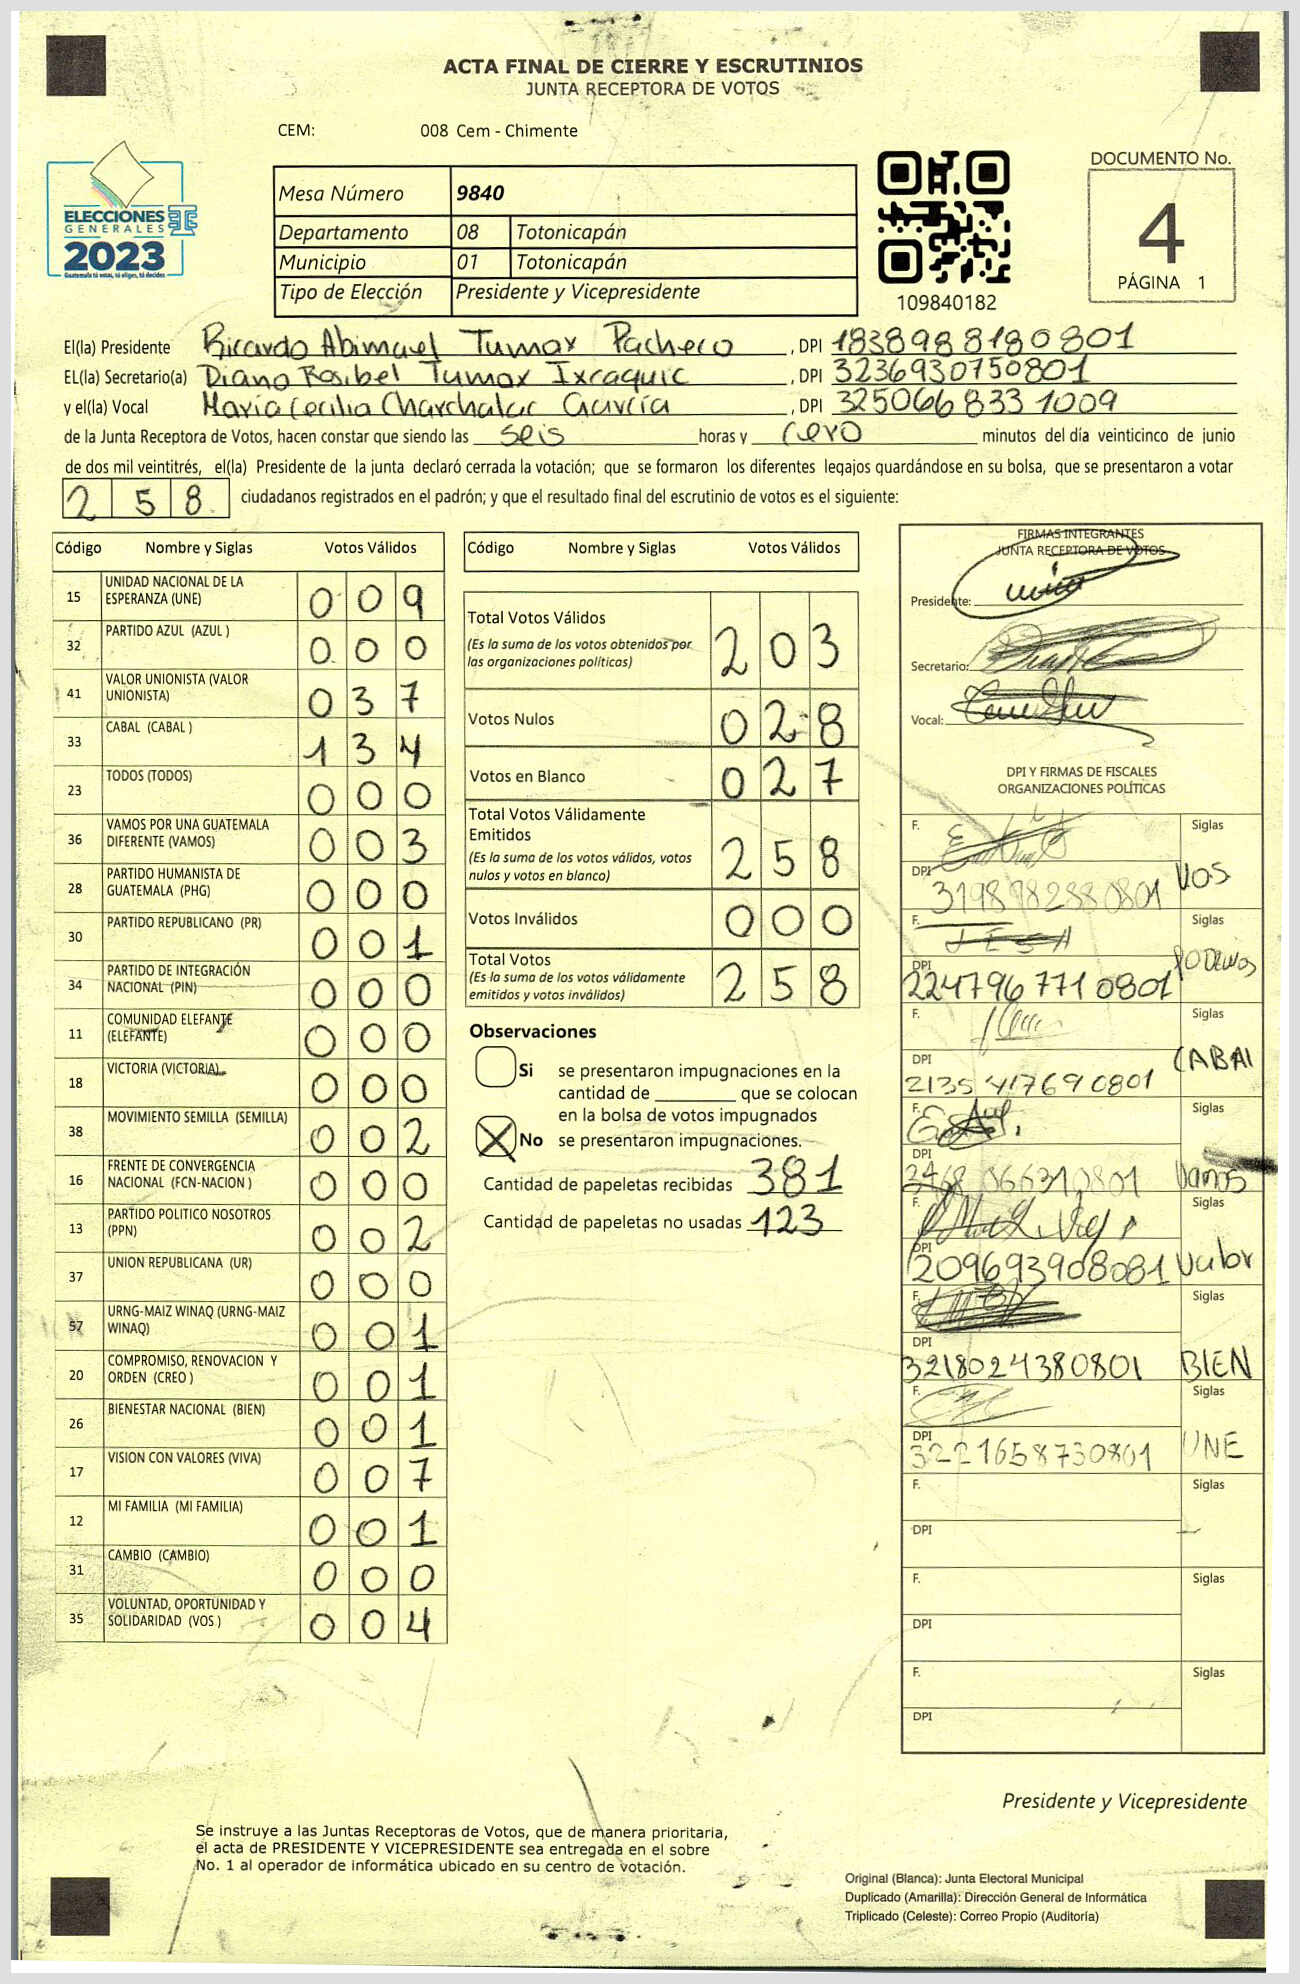 ACTA FINAL DE CIERRE Y ESCRUTINIOS
JUNTA RECEPTORA DE VOTOS
CEM: 008 Cem - Chimente
ELECCIONES
GENERALES
2023
Guatemala tú votas, tú eliges, tú decides
Mesa Número 9840
Departamento 08 Totonicapán
Municipio 01 Totonicapán
Tipo de Elección Presidente y Vicepresidente
109840182
DOCUMENTO No.
4
PÁGINA 1
El(la) Presidente Ricardo Abimael Tumax Pacheco, DPI 1838988180801
EL(la) Secretario(a) Diana Rosibel Tumax Ixcaquic, DPI 3236930750801
y el(la) Vocal María Cecilia Charchalac García, DPI 3250668331009
de la Junta Receptora de Votos, hacen constar que siendo las seis horas y cero minutos del día veinticinco de junio
de dos mil veintitrés, el(la) Presidente de la junta declaró cerrada la votación; que se formaron los diferentes legajos guardándose en su bolsa, que se presentaron a votar
258 ciudadanos registrados en el padrón; y que el resultado final del escrutinio de votos es el siguiente:
Código Nombre y Siglas Votos Válidos
15 UNIDAD NACIONAL DE LA ESPERANZA (UNE) 009
32 PARTIDO AZUL (AZUL ) 000
41 VALOR UNIONISTA (VALOR UNIONISTA) 037
33 CABAL (CABAL ) 134
23 TODOS (TODOS) 000
36 VAMOS POR UNA GUATEMALA DIFERENTE (VAMOS) 003
28 PARTIDO HUMANISTA DE GUATEMALA (PHG) 000
30 PARTIDO REPUBLICANO (PR) 001
34 PARTIDO DE INTEGRACIÓN NACIONAL (PIN) 000
11 COMUNIDAD ELEFANTE (ELEFANTE) 000
18 VICTORIA (VICTORIA) 000
38 MOVIMIENTO SEMILLA (SEMILLA) 002
16 FRENTE DE CONVERGENCIA NACIONAL (FCN-NACION ) 000
13 PARTIDO POLITICO NOSOTROS (PPN) 002
37 UNION REPUBLICANA (UR) 000
57 URNG-MAIZ WINAQ (URNG-MAIZ WINAQ) 001
20 COMPROMISO, RENOVACION Y ORDEN (CREO ) 001
26 BIENESTAR NACIONAL (BIEN) 001
17 VISION CON VALORES (VIVA) 007
12 MI FAMILIA (MI FAMILIA) 001
31 CAMBIO (CAMBIO) 000
35 VOLUNTAD, OPORTUNIDAD Y SOLIDARIDAD (VOS ) 004
Código Nombre y Siglas Votos Válidos
Total Votos Válidos 203
(Es la suma de los votos obtenidos por
las organizaciones políticas)
Votos Nulos 028
Votos en Blanco 027
Total Votos Válidamente
Emitidos 258
(Es la suma de los votos válidos, votos
nulos y votos en blanco)
Votos Inválidos 000
Total Votos 258
(Es la suma de los votos válidamente
emitidos y votos inválidos)
Observaciones
Si se presentaron impugnaciones en la
cantidad de ________ que se colocan
en la bolsa de votos impugnados
X No se presentaron impugnaciones.
Cantidad de papeletas recibidas 381
Cantidad de papeletas no usadas 123
FIRMAS INTEGRANTES
JUNTA RECEPTORA DE VOTOS
Presidente:
Secretario:
Vocal:
DPI Y FIRMAS DE FISCALES
ORGANIZACIONES POLÍTICAS
F. Siglas
DPI 3198982880801 VOS
F. Siglas
DPI 2247967710801 PODEMOS
F. Siglas
DPI 2135417690801 CABAL
F. Siglas
DPI 3468066310801 Vamos
F. Siglas
DPI 209693908081 Valor
F. Siglas
DPI 3218024380801 BIEN
F. Siglas
DPI 3221658730801 UNE
F. Siglas
DPI
F. Siglas
DPI
F. Siglas
DPI
Presidente y Vicepresidente
Se instruye a las Juntas Receptoras de Votos, que de manera prioritaria,
el acta de PRESIDENTE Y VICEPRESIDENTE sea entregada en el sobre
No. 1 al operador de informática ubicado en su centro de votación.
Original (Blanca): Junta Electoral Municipal
Duplicado (Amarilla): Dirección General de Informática
Triplicado (Celeste): Correo Propio (Auditoría)